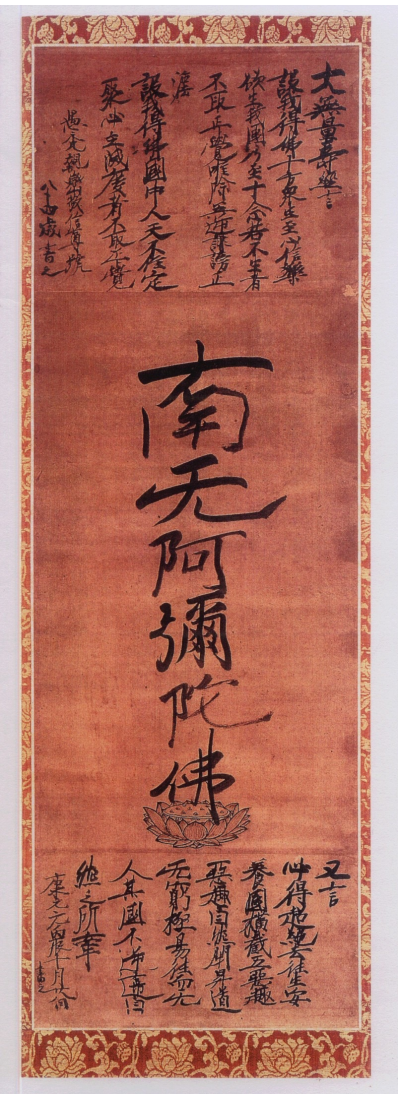 大無量壽經言
設我得佛十方衆生至心信樂
欲生我國乃至十念若不生者
不取正覺唯除五逆誹謗正
灋
設我得佛國中人天不住定
聚必至滅度者不取正覺
愚禿親鸞敬信尊号
八十四歳書之
南无阿彌陀佛
又言
必得超絶去往生安
養國横截五悪趣
悪趣自然閉昇道
无窮極易往而无
人其國不逆違自
然之所牽
康元元丙辰十月廿八日
書之